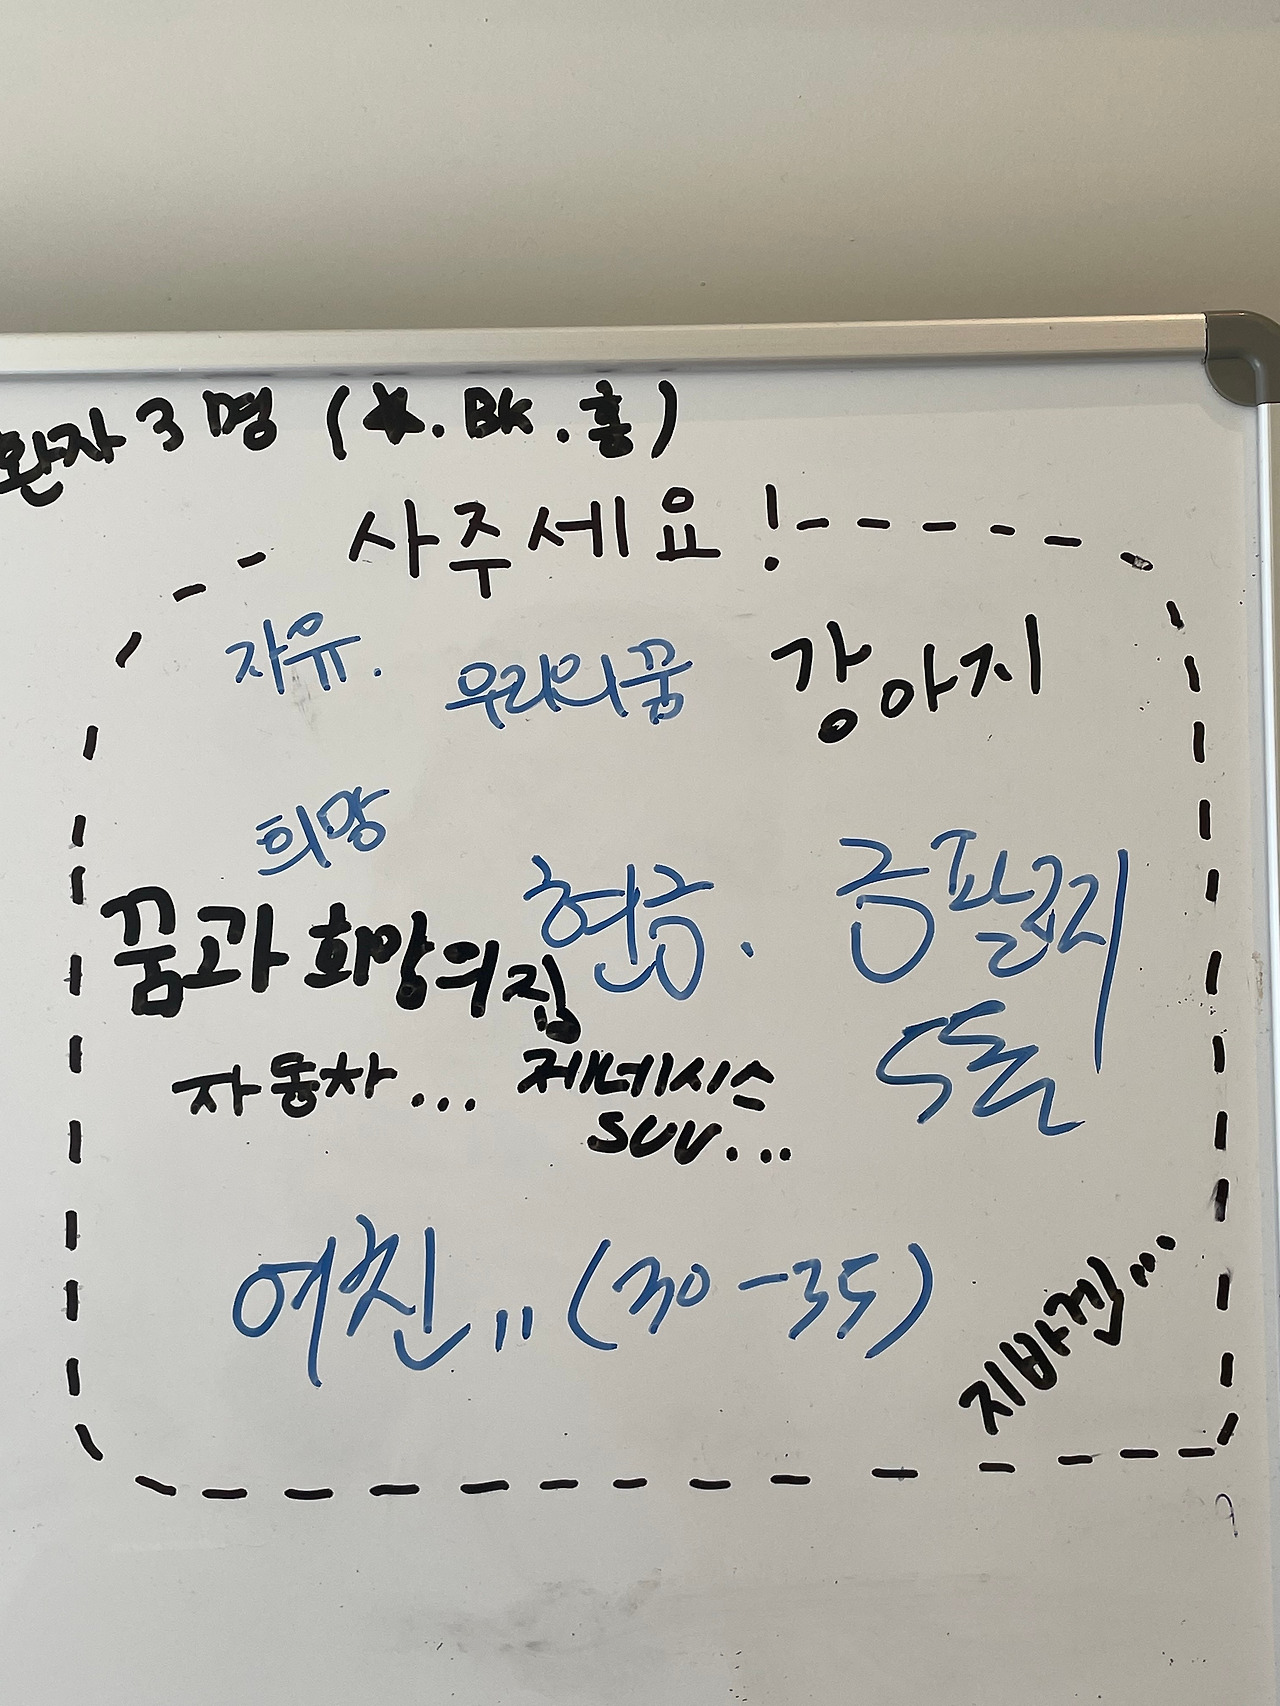 환자 3명 (★. BK. 홍)
사주세요!
자유. 우리의꿈 강아지
희망
현금. 금팔찌
5돈
꿈과 희망의 집
자동차... 제네시스
SUV...
여친,, (30-35)
지바겐...